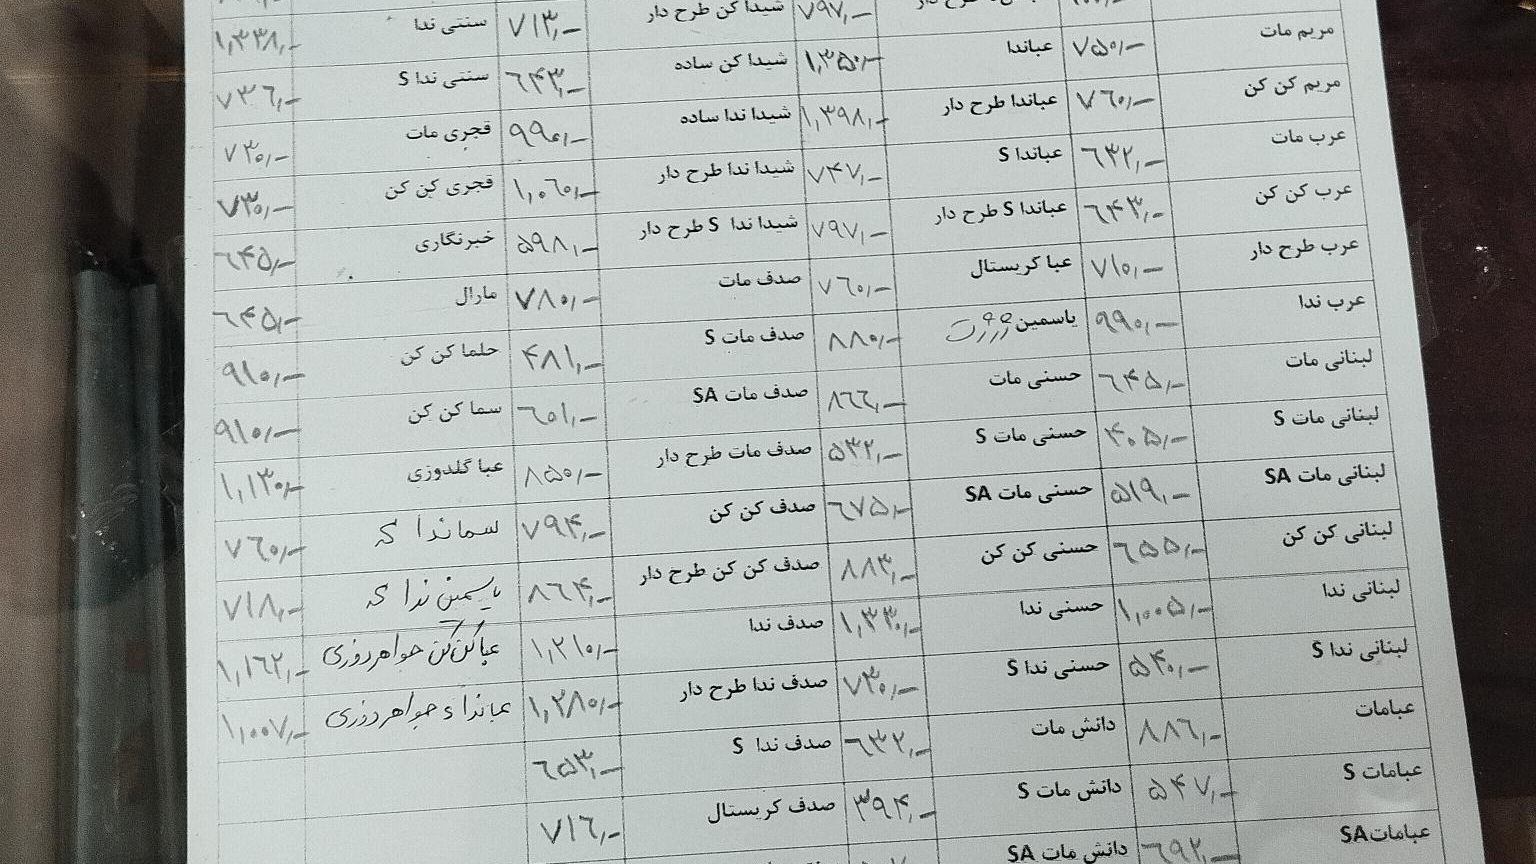 طرح دار ۷۹۷,- شیدا کن طرح دار ۷۱۳,- سنتی ندا ۱,۳۳۸,-
مریم مات ۷۵۰,- عباندا ۱,۳۵۰,- شیدا کن ساده ۶۴۳,- سنتی ندا S ۷۳۶,-
مریم کن کن ۷۶۰,- عباندا طرح دار ۱,۳۹۸,- شیدا ندا ساده ۹۹۰,- قجری مات ۷۳۰,-
عرب مات ۶۳۲,- عباندا S ۷۴۷,- شیدا ندا طرح دار ۱,۰۶۰,- قجری کن کن ۷۳۰,-
عرب کن کن ۶۴۳,- عباندا S طرح دار ۷۹۷,- شیدا ندا S طرح دار ۵۹۸,- خبرنگاری ۶۴۵,-
عرب طرح دار ۷۱۰,- عبا کریستال ۷۶۰,- صدف مات ۷۸۰,- مارال ۶۴۵,-
عرب ندا ۹۹۰,- یاسمین ۸۸۰,- صدف مات S ۴۸۱,- حلما کن کن ۹۱۰,-
لبنانی مات ۶۴۵,- حسنی مات ۸۶۶,- صدف مات SA ۶۰۱,- سما کن کن ۹۱۰,-
لبنانی مات S ۴۰۵,- حسنی مات S ۵۳۲,- صدف مات طرح دار ۸۵۰,- عبا گلدوزی ۱,۱۳۰,-
لبنانی مات SA ۵۱۹,- حسنی مات SA ۶۷۵,- صدف کن کن ۷۹۴,- سما ندا ۷۶۰,-
لبنانی کن کن ۶۵۵,- حسنی کن کن ۸۸۳,- صدف کن کن طرح دار ۸۶۴,- یاسمن ندا ۷۱۸,-
لبنانی ندا ۱,۰۰۵,- حسنی ندا ۱,۳۳۰,- صدف ندا ۱,۲۱۰,- عبا کن کن جواهردوزی ۱,۱۶۲,-
لبنانی ندا S ۵۴۰,- حسنی ندا S ۷۳۰,- صدف ندا طرح دار ۱,۲۸۰,- عبا ندا جواهردوزی ۱,۰۰۷,-
عبامات ۸۸۶,- دانش مات ۶۳۲,- صدف ندا S ۶۵۳,-
عبامات S ۵۴۷,- دانش مات S ۳۹۴,- صدف کریستال ۷۱۶,-
عبامات SA ۶۹۲,- دانش مات SA